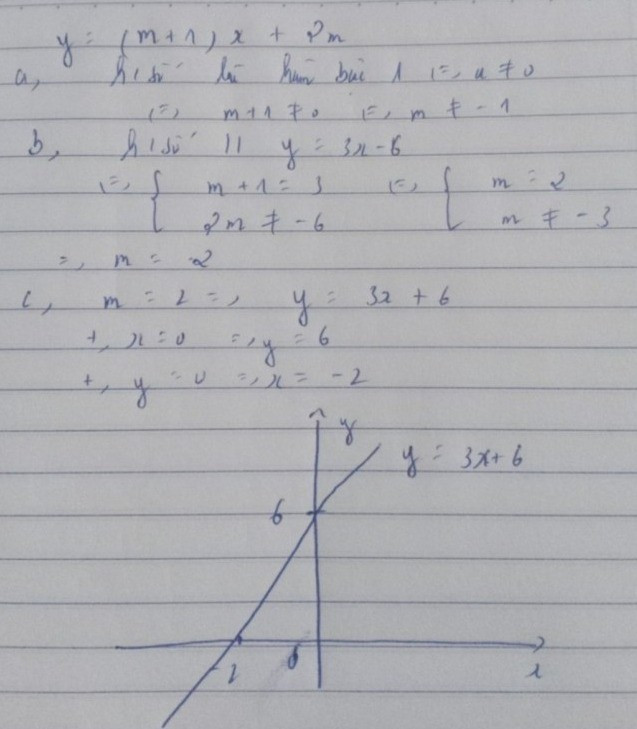 y = (m+1) x + 2m
a, h/số là hàm bậc 1 <=> a ≠ 0
<=> m+1 ≠ 0 <=> m ≠ -1
b, h/số // y = 3x-6
<=> { m+1 = 3 <=> { m = 2
2m ≠ -6 m ≠ -3
=> m = 2
c, m = 2 => y = 3x + 6
+, x=0 => y = 6
+, y = 0 => x = -2
y
y = 3x+6
6
-2 0 x